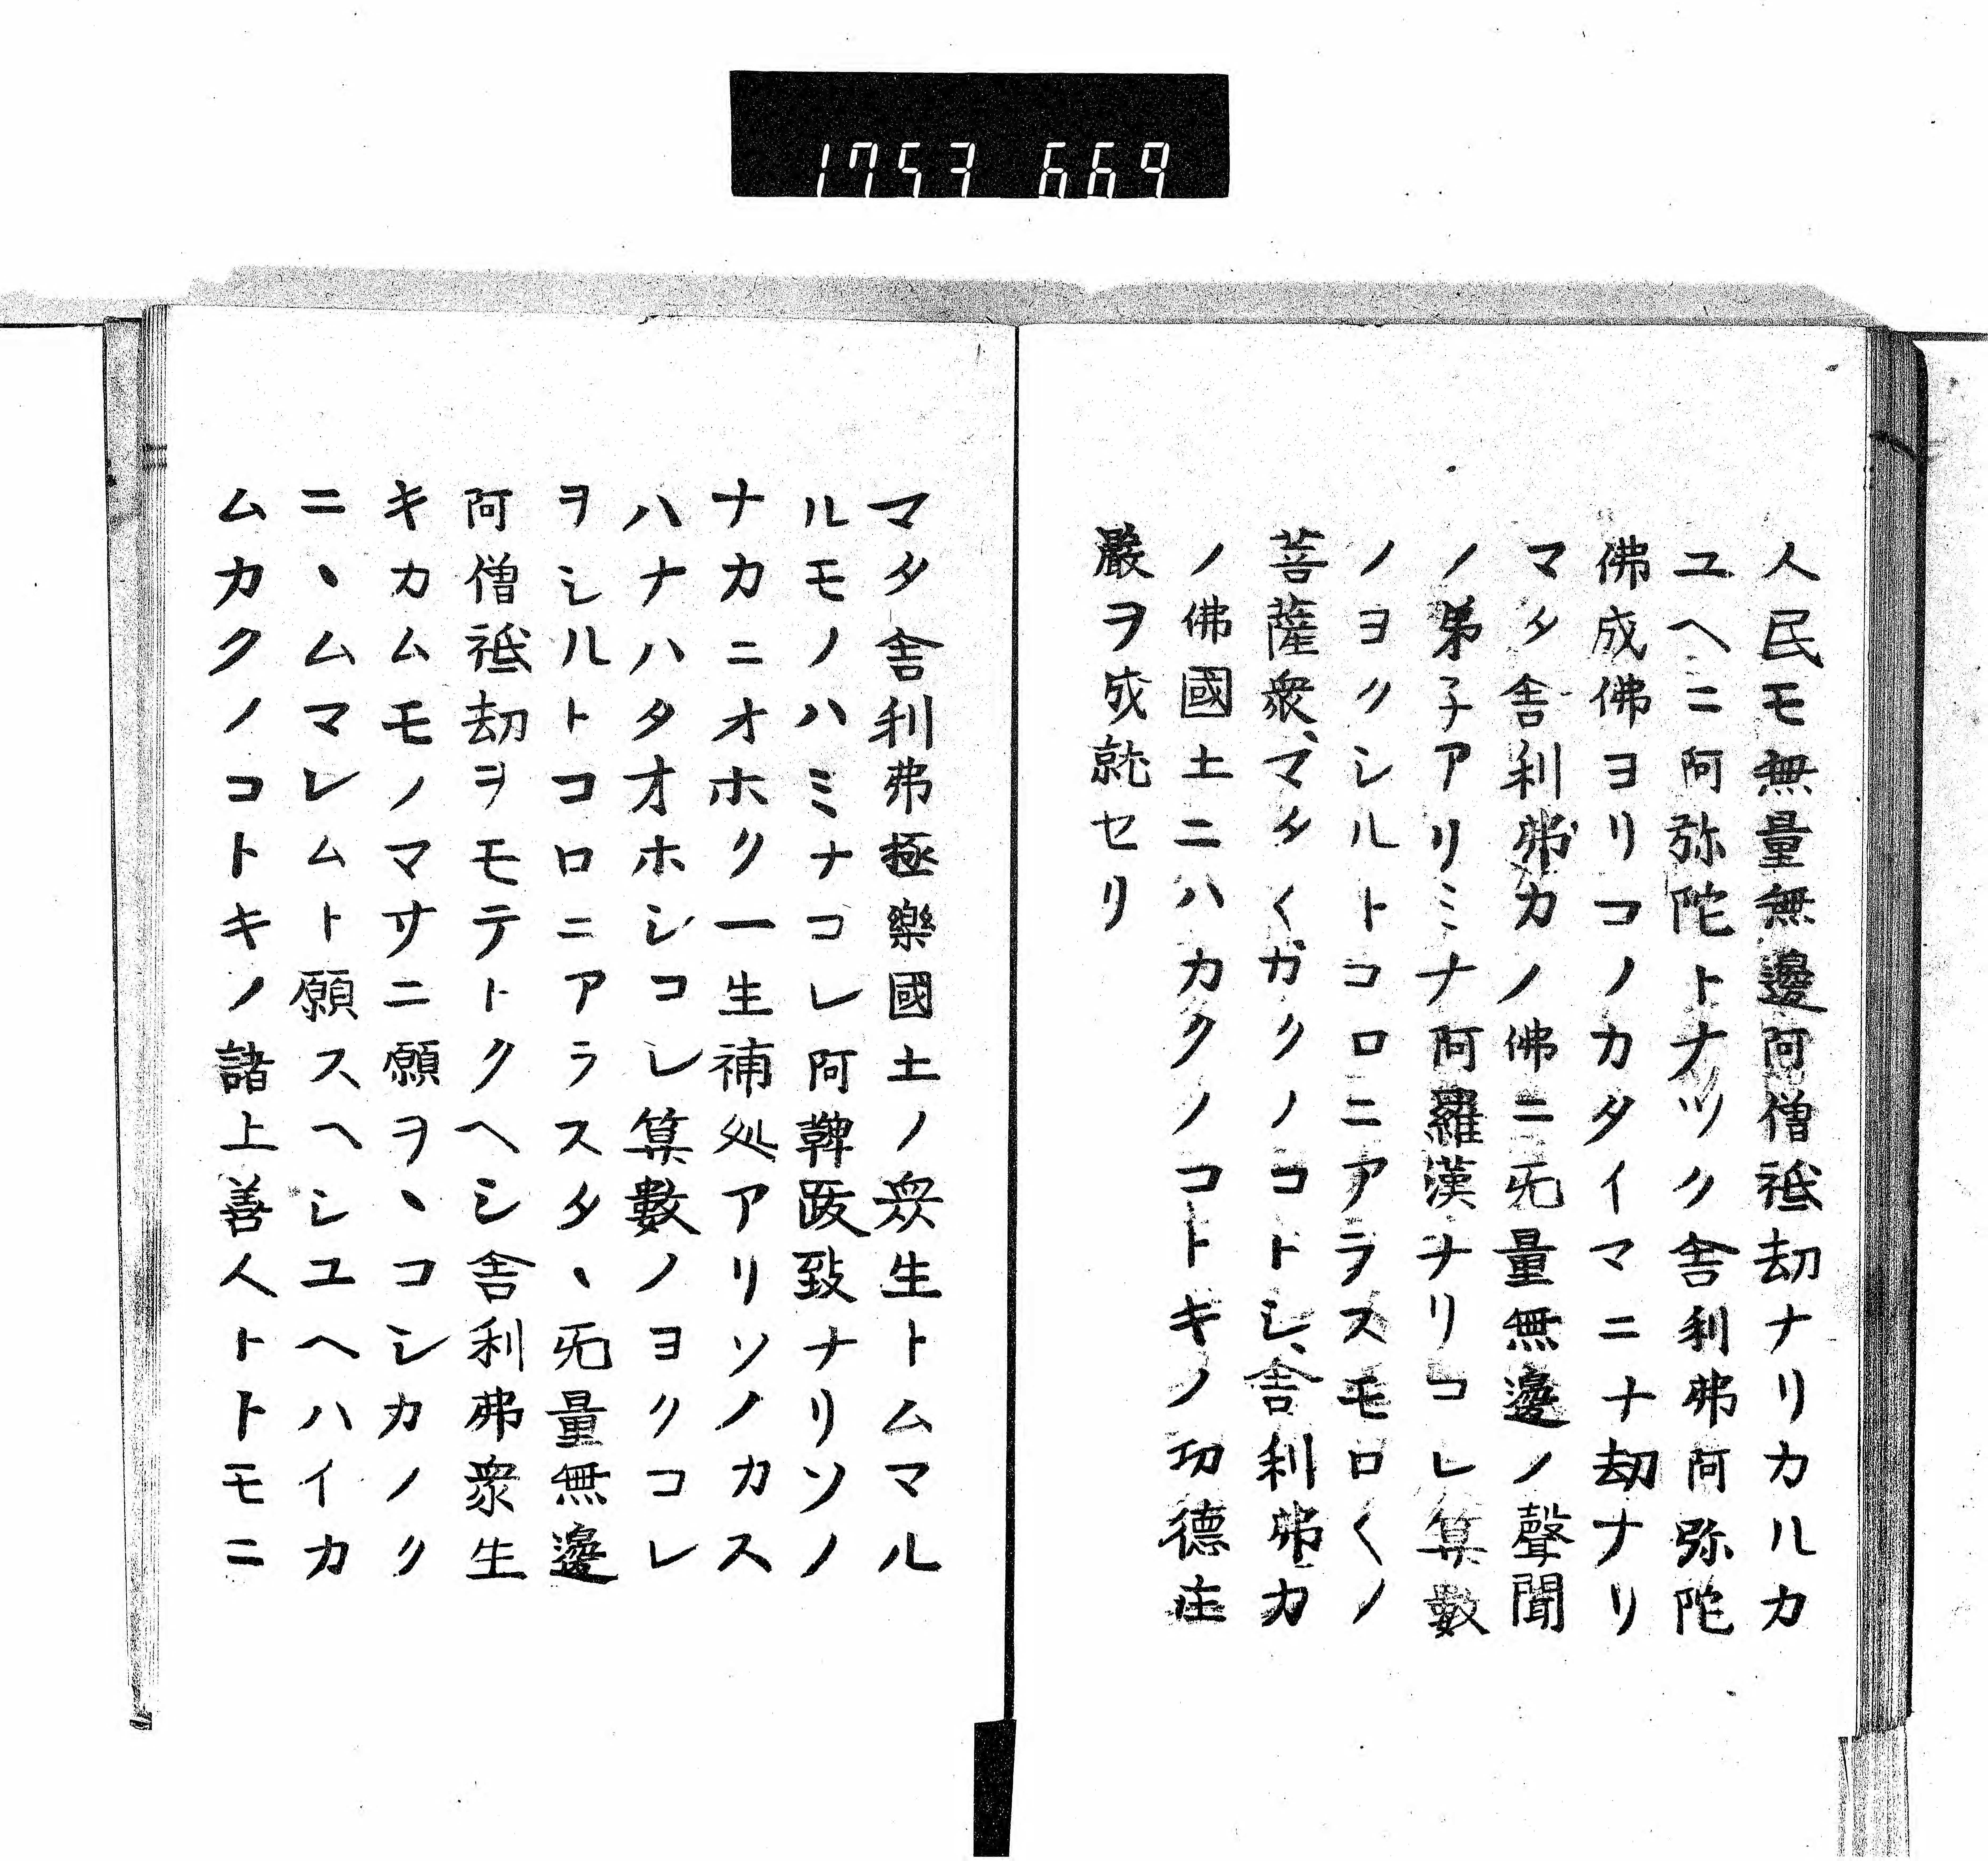 1753 669
人民モ無量無邊阿僧祇劫ナリカルカ
ユヘニ阿弥陀トナツク舎利弗阿弥陀
佛成佛ヨリコノカタイマニナ劫ナリ
マタ舎利弗カノ佛ニ无量無邊ノ聲聞
ノ弟子アリミナ阿羅漢ナリコレ算數
ノヨクシルトコロニアラスモロ〱ノ
菩薩衆マタ〱ガクノコトシ舎利弗カ
ノ佛國土ニハカクノコトキノ功德庄
嚴ヲ成就セリ
マタ舎利弗極樂國土ノ衆生トムマル
ルモノハミナコレ阿鞞跋致ナリソノ
ナカニオホク一生補処アリソノカス
ハナハタオホシコレ算數ノヨクコレ
ヲシルトコロニアラスタヽ无量無邊
阿僧祇劫ヲモテトクヘシ舎利弗衆生
キカムモノマサニ願ヲヽコシカノク
ニヽムマレムト願スヘシユヘハイカ
ムカクノコトキノ諸上善人トトモニ